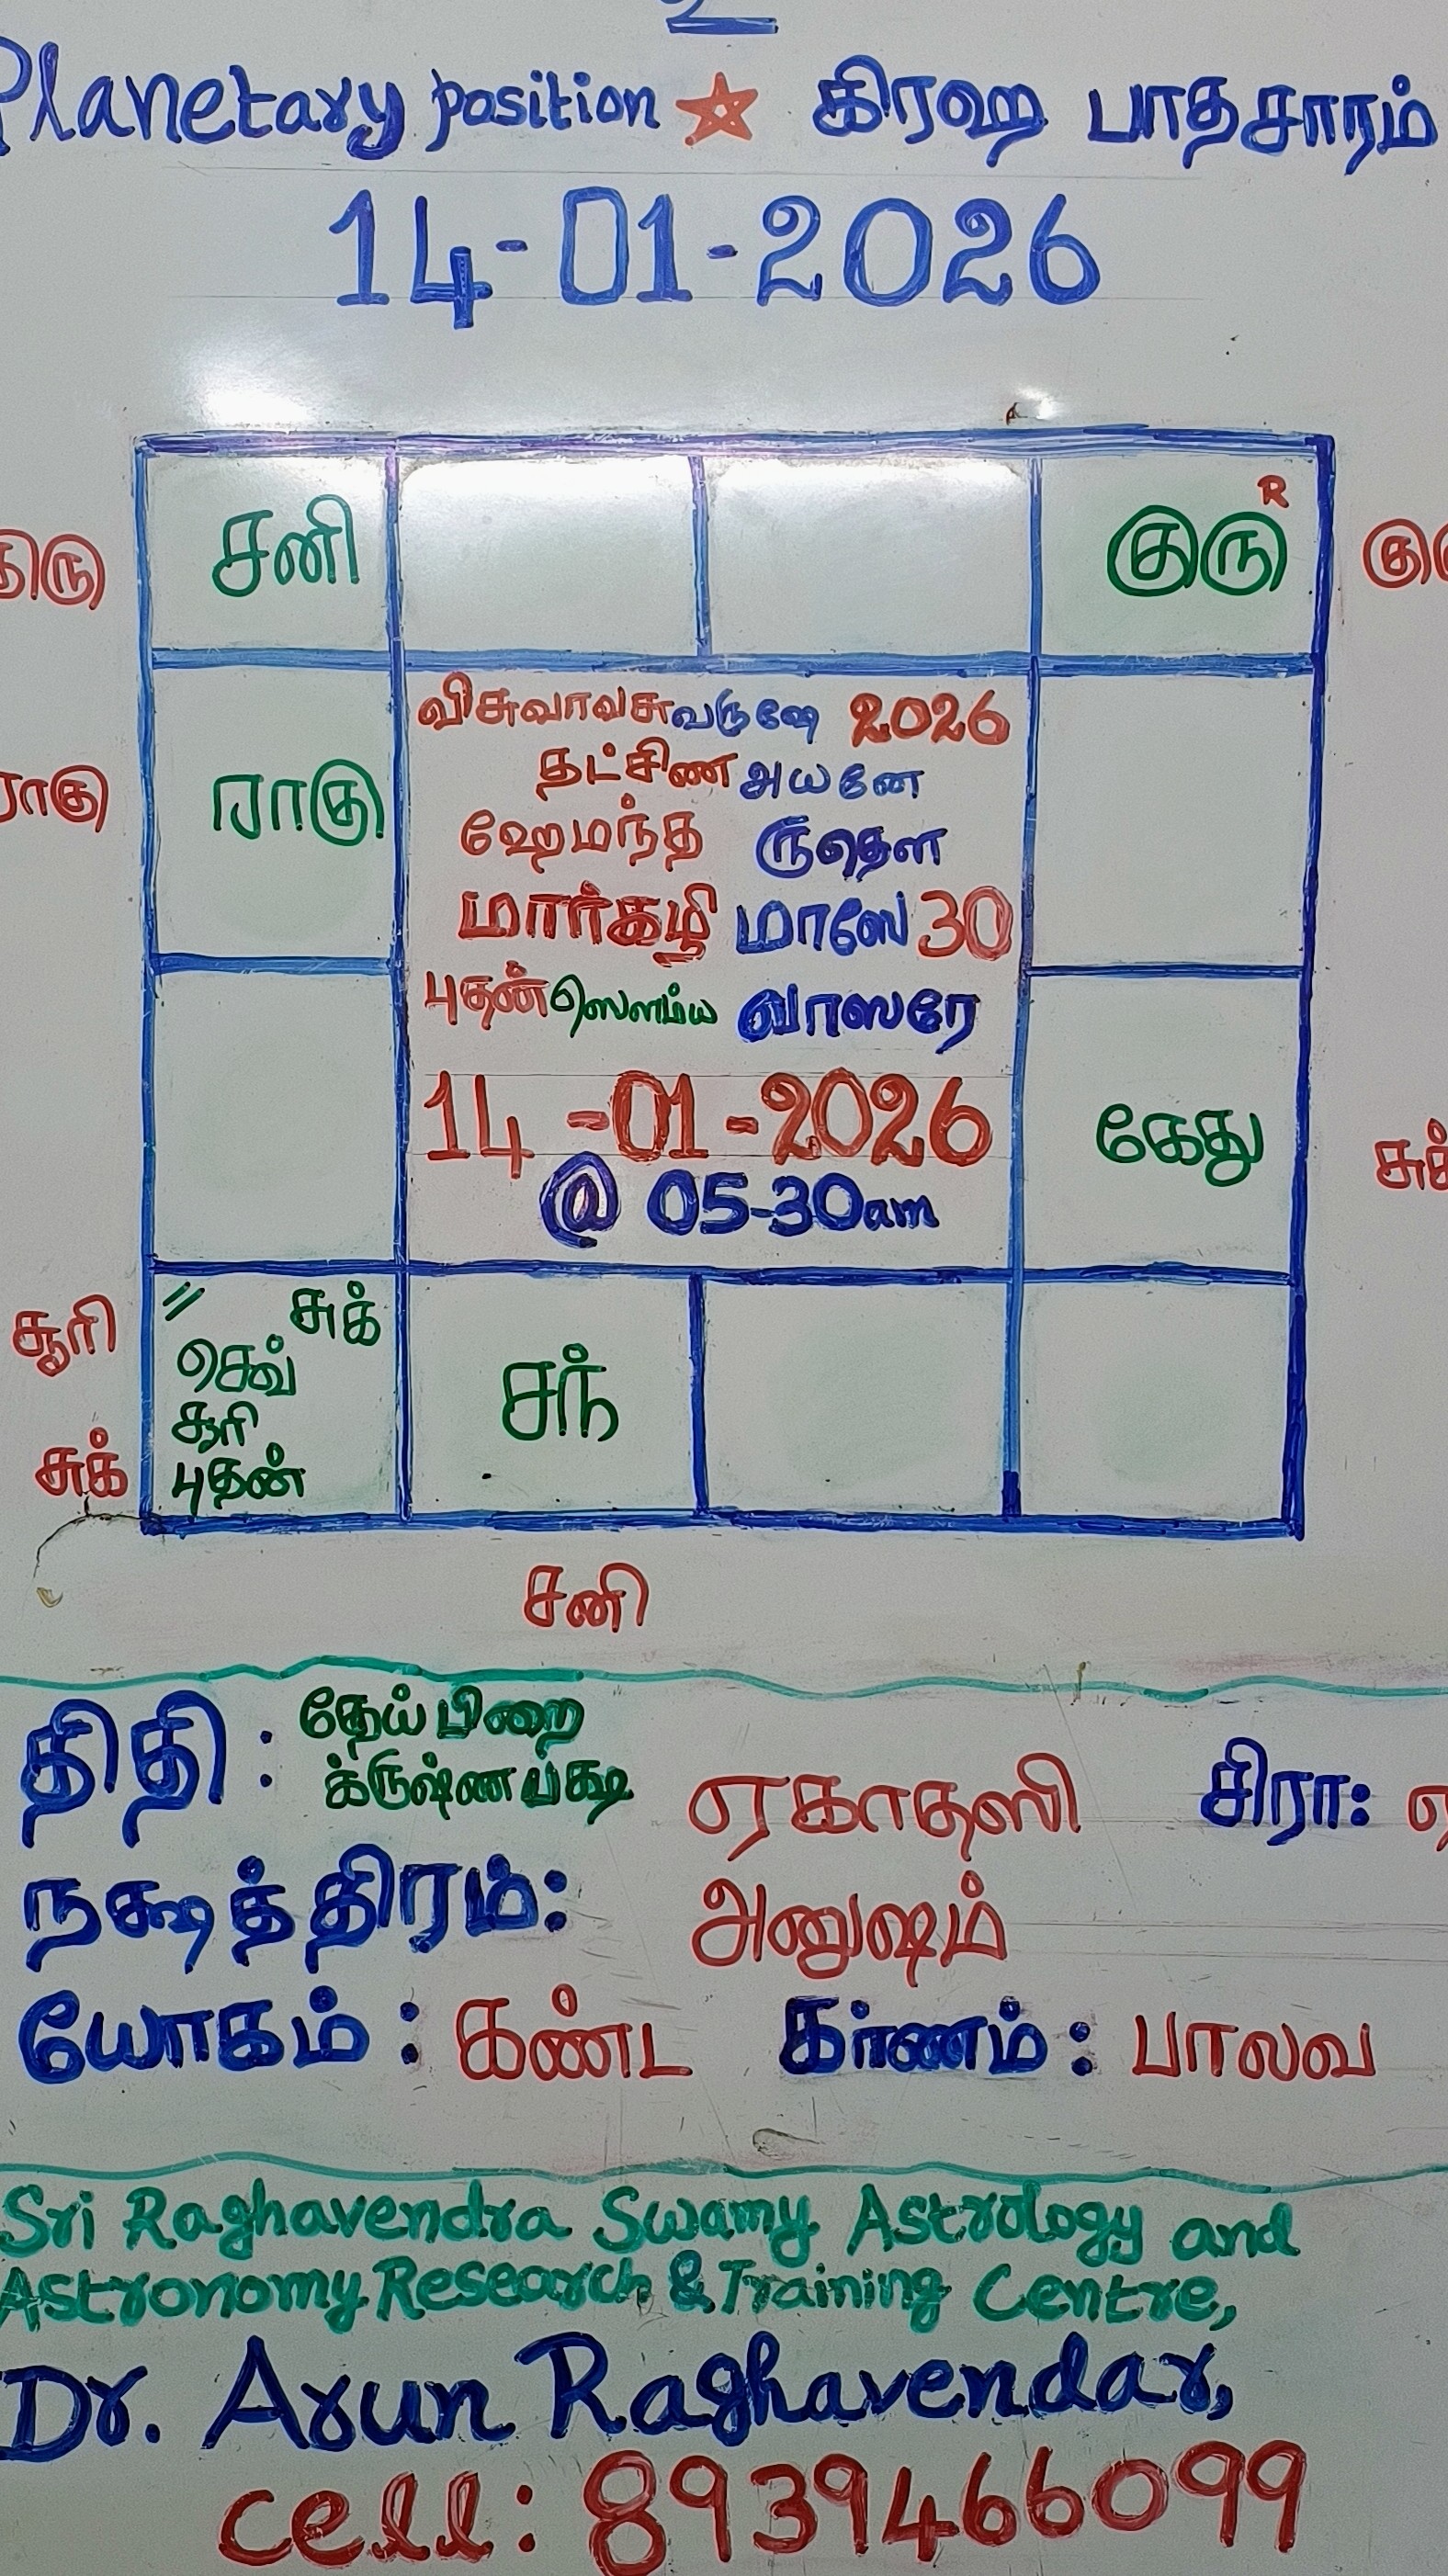 Planetary position ☆ கிரஹ பாதசாரம்
14-01-2026
சனி
குரு R
ராகு
ராகு
விசுவாவசு வருஷே 2026
தட்சிண அயனே
ஹேமந்த ருதௌ
மார்கழி மாஸே 30
புதன் ஸௌம்ய வாஸரே
14-01-2026
@ 05-30am
கேது
சூரி
சுக்
〃 சுக்
செவ்
சூரி
புதன்
சந்
சனி
திதி : தேய்பிறை
க்ருஷ்ணபக்ஷ ஏகாதஸி சிரா:
நக்ஷத்திரம்: அனுஷம்
யோகம் : கண்ட கர்ணம் : பாலவ
Sri Raghavendra Swamy Astrology and
Astronomy Research & Training Centre,
Dr. Arun Raghavendar,
cell: 8939466099